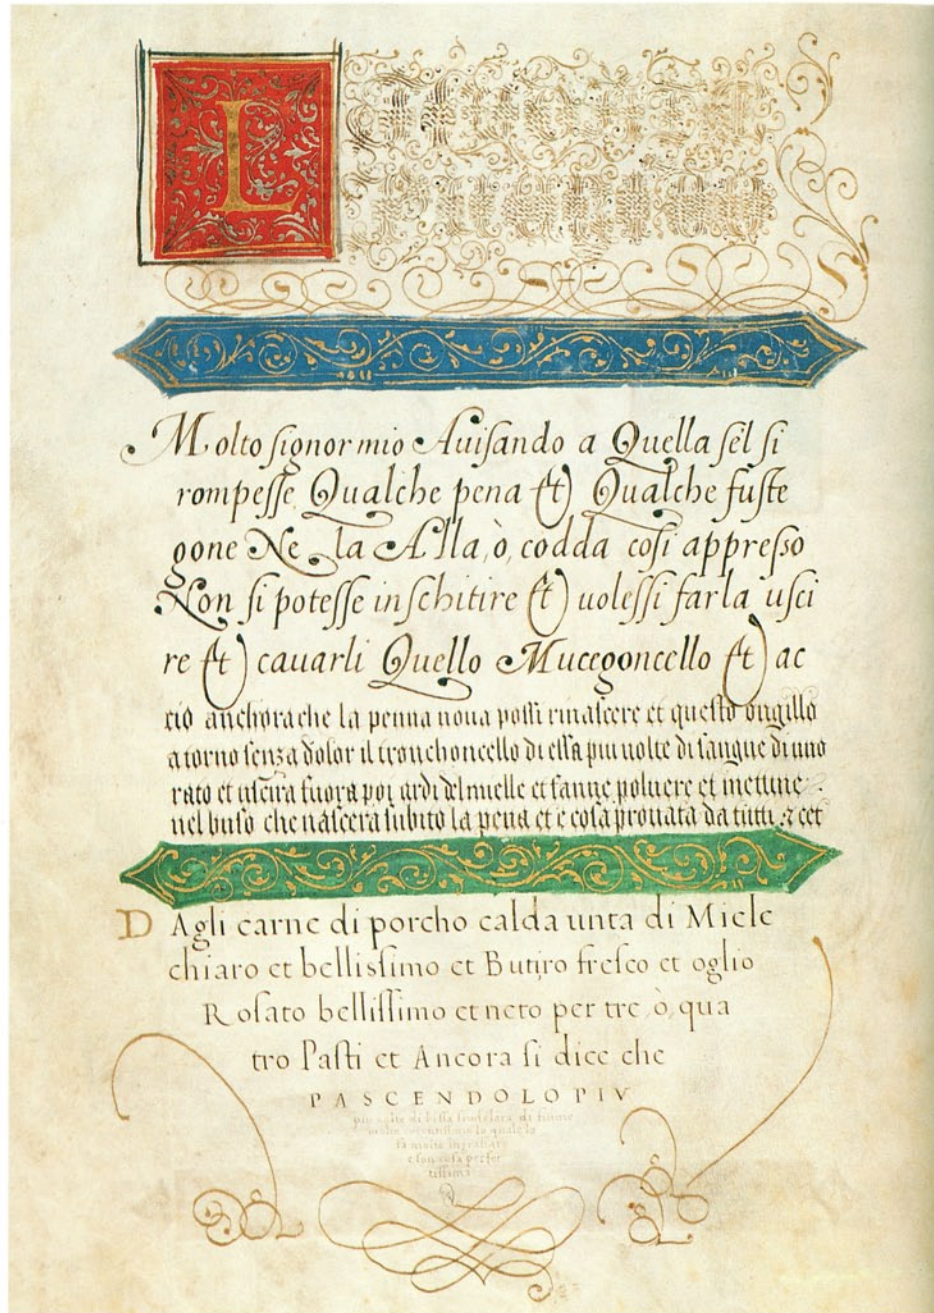 L
Molto ſignor mio Auiſando a Quella ſel ſi
rompeſſe Qualche pena et Qualche fuſte
gone Ne la Alla, ò, codda coſi appreſſo
Non ſi poteſſe inſchitire et uoleſſi farla uſci
re et cauarli Quello Mucegoncello et ac
ciò anchora che la penna noua poſſi rinaſcere et queſto ongillo
a torno ſenza dolor il tronchoncello di eſſa piu uolte di ſangue di uno
rato et uſcira fuora poi ardi del muelle et fanne poluere et mettine
nel buſo che naſcera ſubito la pena et è coſa prouata da tutti & cet
D Agli carne di porcho calda unta di Miele
chiaro et belliſſimo et Butiro freſco et oglio
Roſato belliſſimo et neto per tre, ò, qua
tro Paſti et Ancora ſi dice che
PASCENDOLO PIV